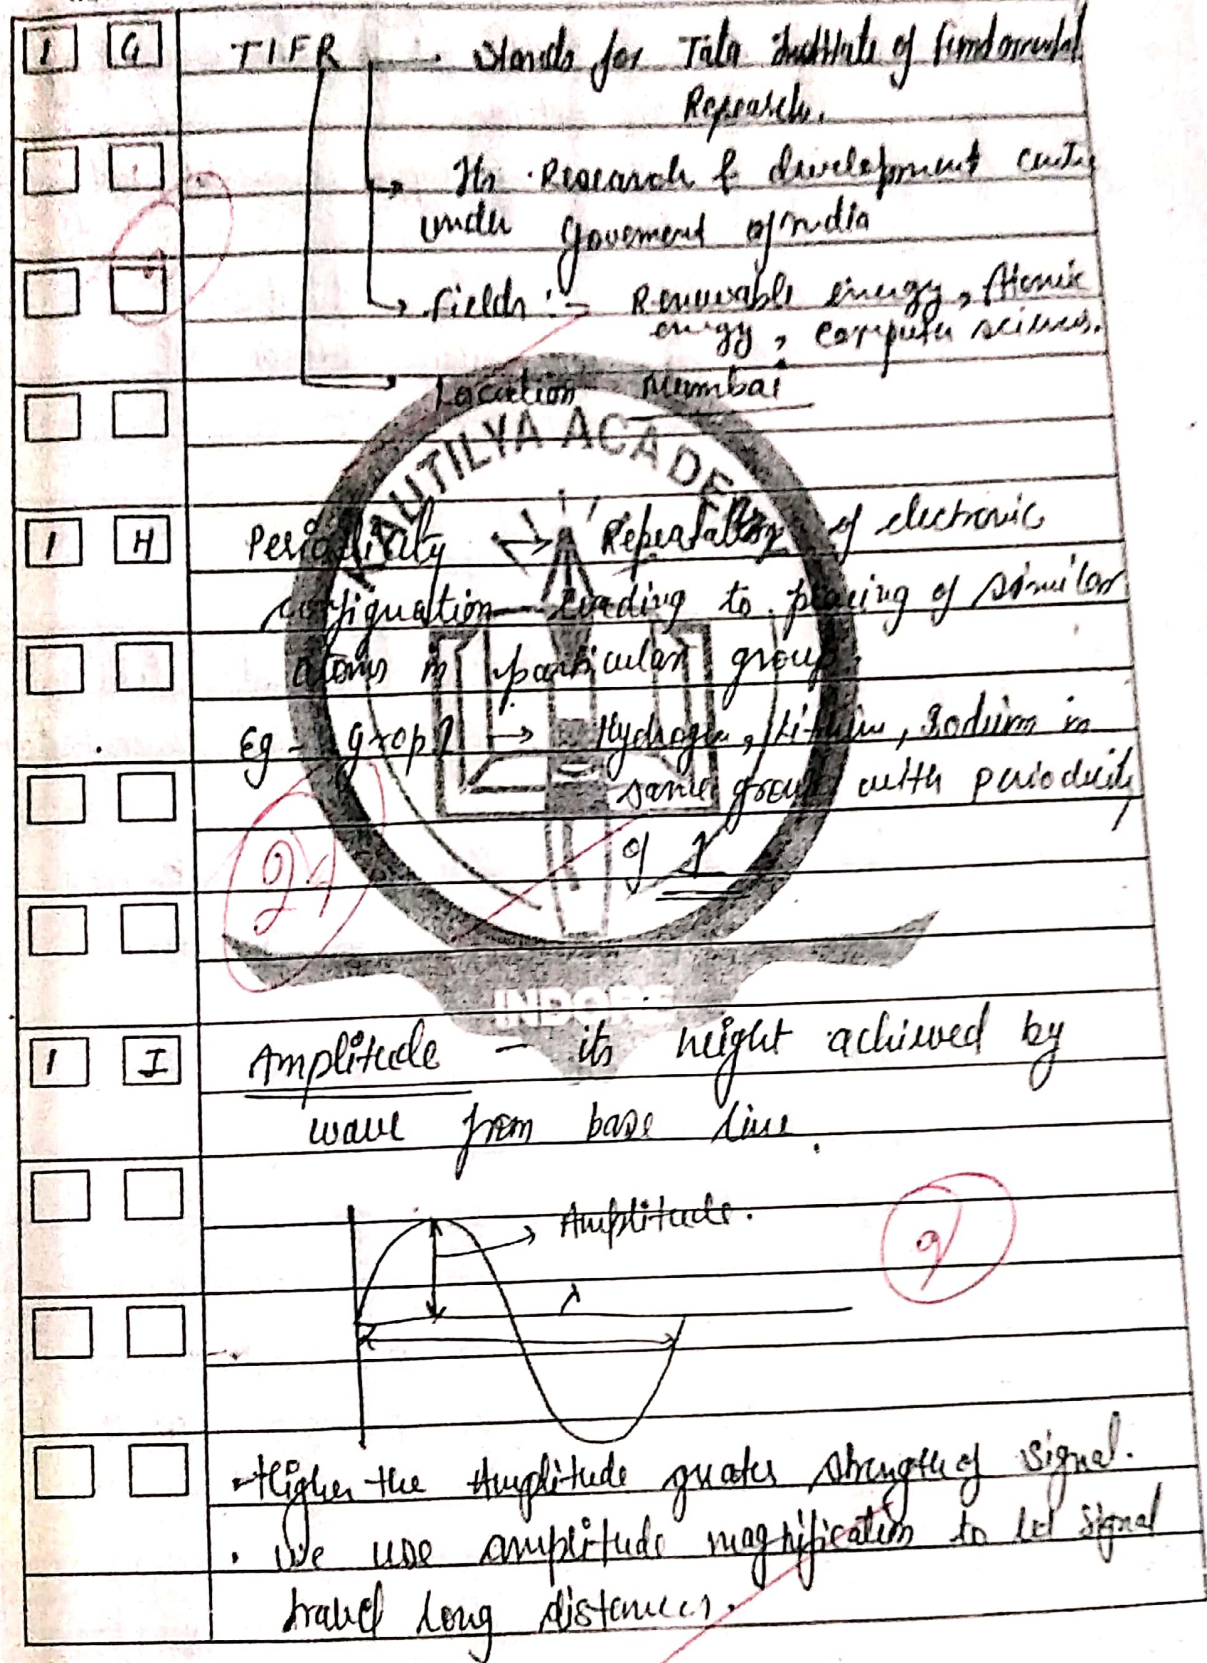 1 G TIFR . Stands for Tata Institute of fundamental
Research.
Its Research & development centre
under Goverment of India
Fields :- Renewable energy, Atomic
energy, computer sciences.
Location Mumbai
KAUTILYA ACADEMY
1 H Periodicity Repeatation of electronic
configuation leading to placing of similar
atoms in particular group.
Eg - Grop 1 → Hydrogen, Lithium, Sodium in
same group with periodicity
of 1
INDORE
1 I Amplitude - its height achieved by
wave from base line.
Amplitude.
λ
• Higher the Amplitude greater strength of signal.
• We use amplitude magnification to let signal
travel long distances.